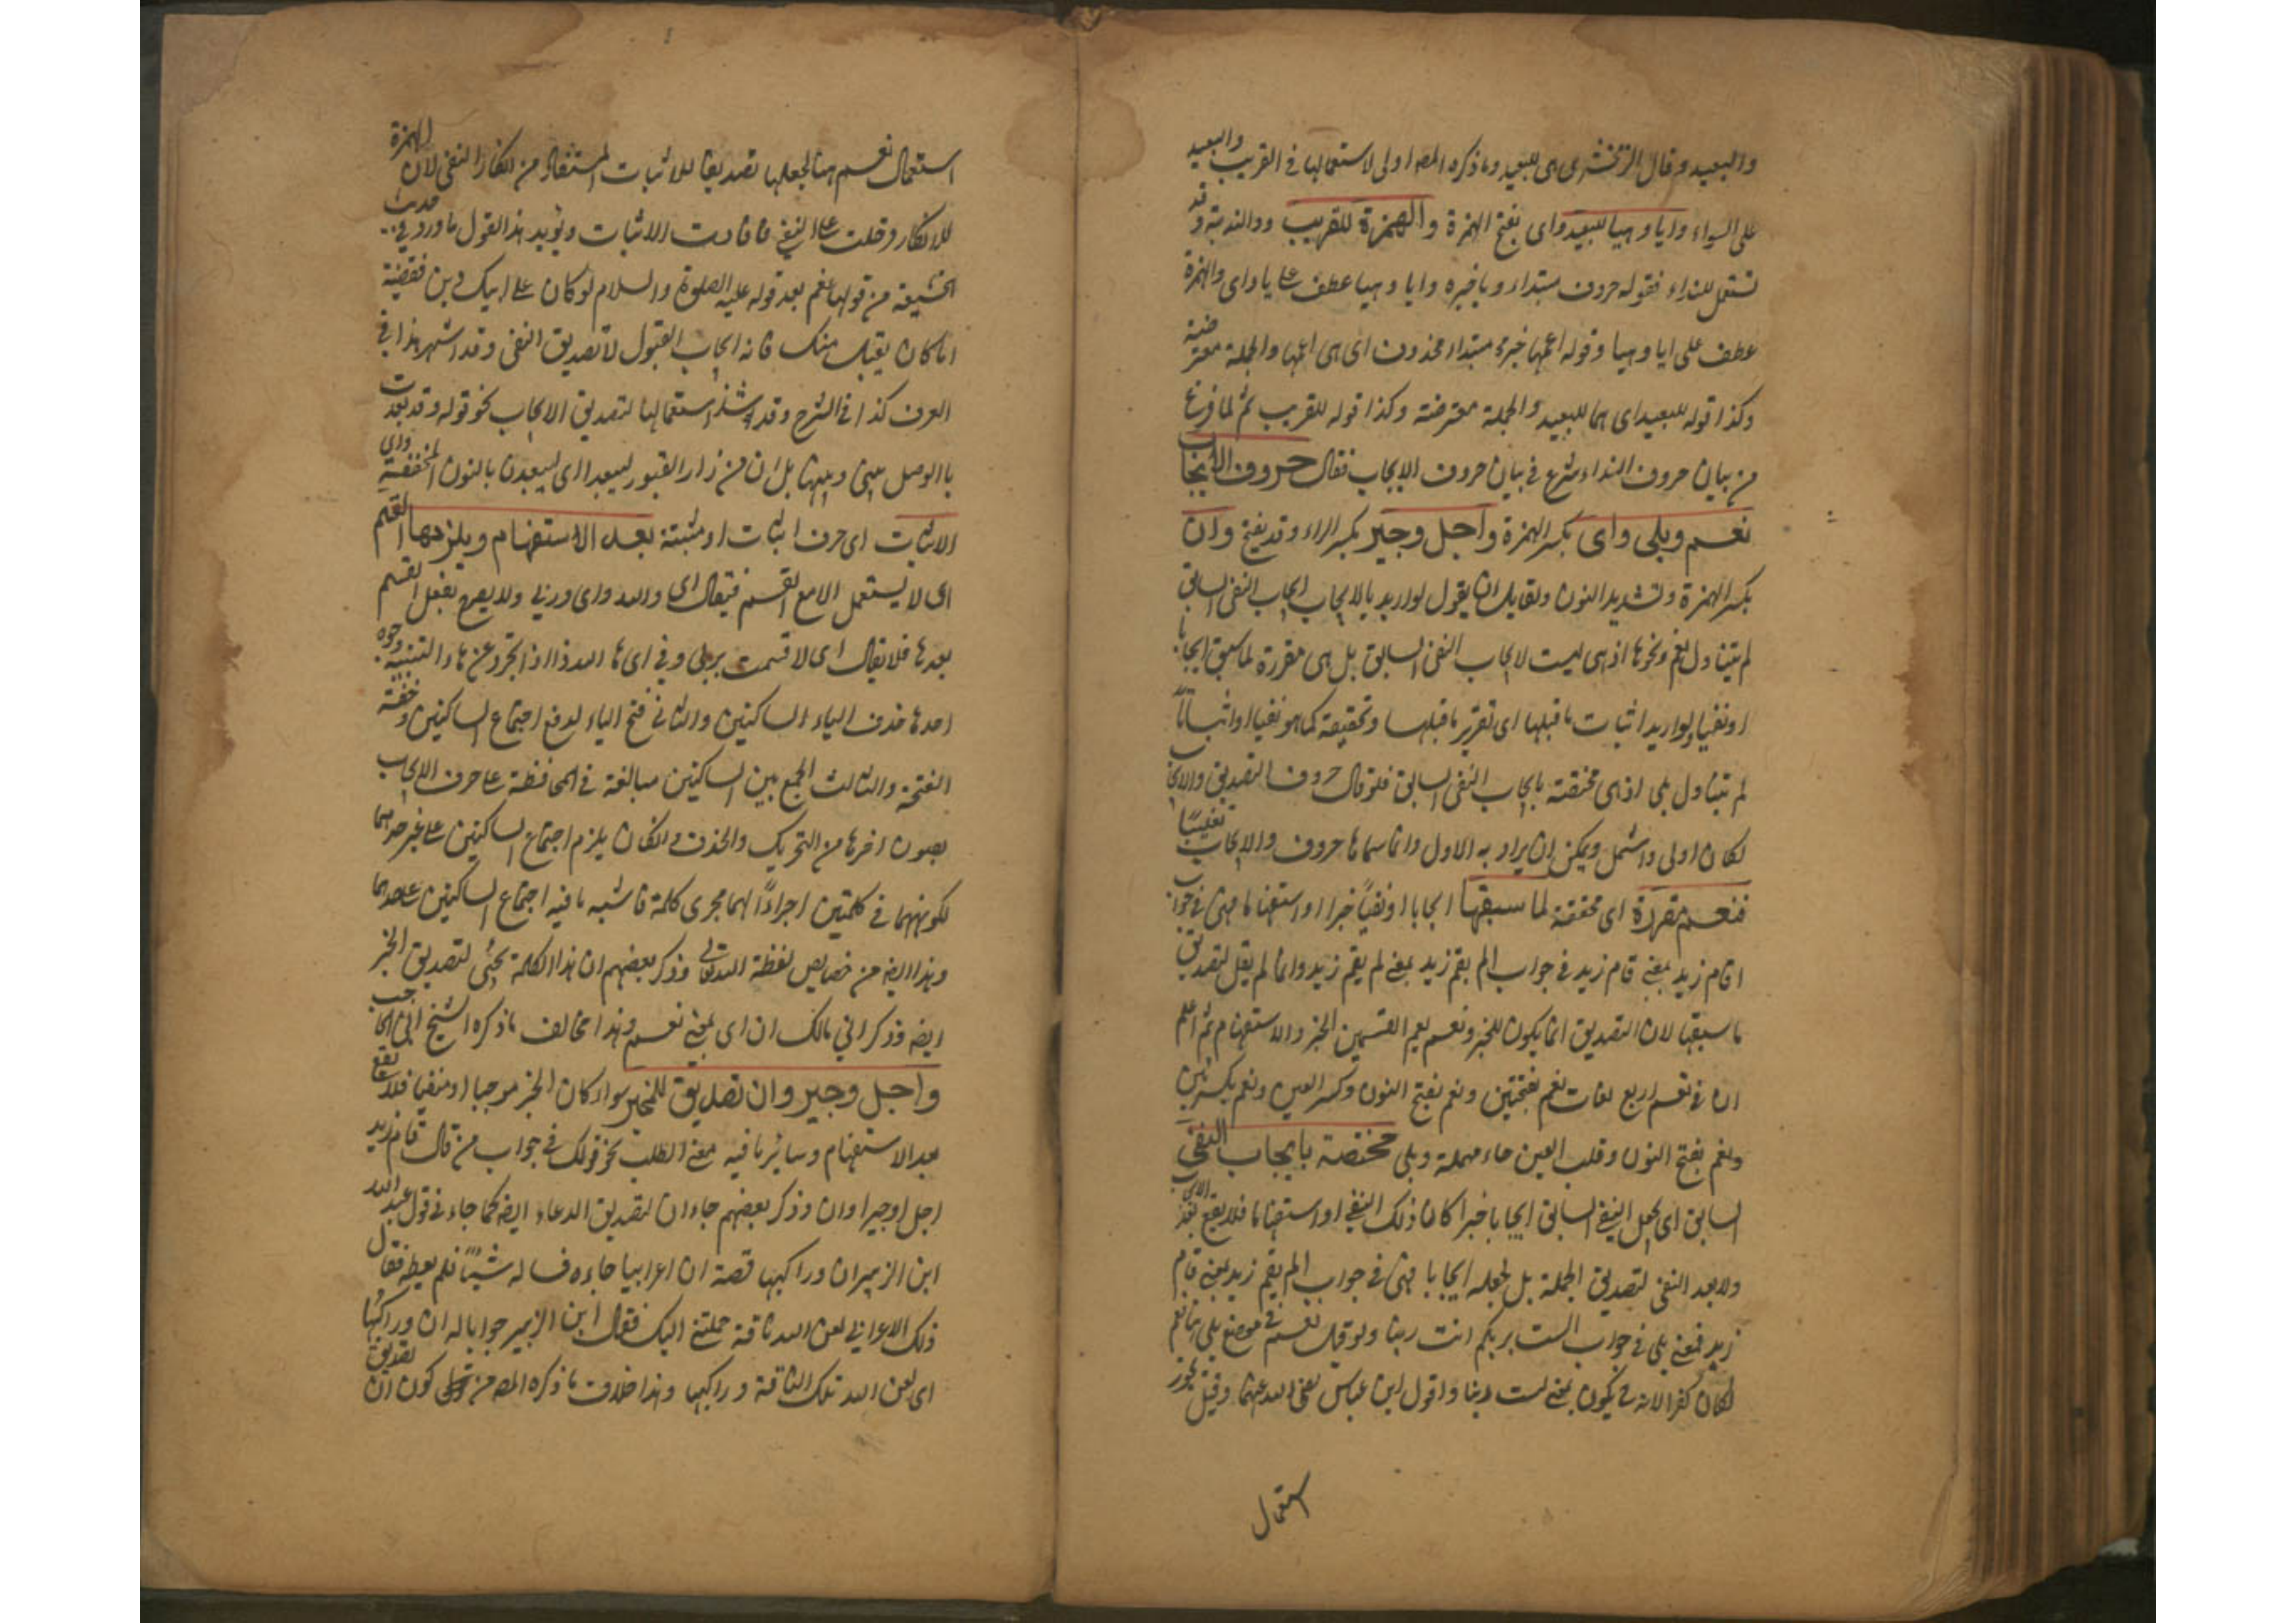 والبعيد وقال الزمخشرى هى للبعيد وما ذكره المصـ اولى لاستعمالها فى القريب والبعيد
على السواء وايا وهيا للبعيد واى بفتح الهمزة والهمزة للقريب ووا للندبة وقد
تستعمل للنداء فقوله حروف مبتداء ويا خبره وايا وهيا عطف على يا واى والهمزة
عطف على ايا وهيا وقوله اعمها خبر مبتداء محذوف اى هى اعمها والجملة معترضة
وكذا قوله للبعيد اى هما للبعيد والجملة معترضة وكذا قوله للقريب ثم لما فرغ
من بيان حروف النداء شرع فى بيان حروف الايجاب فقال حروف الايجاب
نعم وبلى واى بكسر الهمزة واجل وجير بكسر الراء وقد يفتح وان
بكسر الهمزة وتشديد النون ولقايل ان يقول لو اريد بالايجاب ايجاب النفى السابق
لم يتناول نعم ونحوها اذ هى ليست لايجاب النفى السابق بل هى مقررة لما سبق ايجابا
او نفيا ولو اريد اثبات ما قبلها اى تقرير ما قبلها وتحقيقه كما هو نفيا او اثباتا
لم يتناول بلى اذ هى مختصة بايجاب النفى السابق فلو قال حروف التصديق والايجاب
لكان اولى واشمل ويمكن ان يراد به الاول وانما سماها حروف والايجاب تغليبا
فنعم مقررة اى محققة لما سبقها ايجابا او نفيا خبرا او استفهاما فهى فى جواب
اقام زيد بمعنى قام زيد فى جواب الم يقم زيد بمعنى لم يقم زيد وانما لم يقل لتصديق
ما سبقها لان التصديق انما يكون للخبر ونعم يعم القسمين الخبر والاستفهام ثم اعلم
ان فى نعم اربع لغات نعم بفتحتين ونعم بفتح النون وكسر العين ونعم بكسرتين
ونعم بفتح النون وقلب العين حاء مهملة وبلى مختصة بايجاب النفى
السابق اى يجعل النفى السابق ايجابا خبرا كان ذلك النفى او استفهاما فلا يقع بعد الايجاب
ولا بعد النفى لتصديق الجملة بل لجعله ايجابا فهى فى جواب الم يقم زيد بمعنى قام
زيد فمعنى بلى فى جواب الست بربكم انت ربنا ولو قيل نعم فى موضع بلى هنا نعم
لكان كفرا لانه يكون بمعنى لست ربنا واقول ابن عباس رضى الله عنهما وقيل يجوز
استعمال
استعمال نعم هنا لجعلها تصديقا للاثبات المستفاد من انكار النفى لان الهمزة
للانكار دخلت على النفى فافادت الاثبات ويؤيد هذا القول ما ورد فى حديث
الخثعمية من قولها نعم بعد قوله عليه الصلوة والسلام لو كان على ابيك دين فقضيته
اما كان يقبل منك فانه ايجاب القبول لا تصديق النفى وقد اشتهر هذا فى
العرف كذا فى الشرح وقد شذ استعمالها لتصديق الايجاب نحو قوله وقد بعدت
بالوصل بينى وبينها بلى ان من زار القبور ليبعدا اى ليبعدن بالنون المخففة واى
الاثبات اى حرف اثبات او مثبتة بعد الاستفهام ويلزمها القسم
اى لا يستعمل الا مع القسم فيقال اى والله واى وربى ولا يصرح بفعل القسم
بعدها فلا يقال اى لا قسمت بربى وفى اى ها الله ذا اذ الجر وعن ها والتنبيه وجوه
احدها حذف الياء الساكنين والثانى فتح الياء لدفع اجتماع الساكنين وخفة
الفتحة والثالث الجمع بين الساكنين مبالغة فى المحافظة على حرف الايجاب
بصون اخرها من التحريك والحذف وان كان يلزم اجتماع الساكنين على غير حدهما
لكونهما فى كلمتين اجراءً لهما مجرى كلمة فاشبه ما فيه اجتماع الساكنين على حدهما
وهذا ايضـ من خصايص لفظة الله تعالى وذكر بعضهم ان هذا الكلمة يجئ لتصديق الخبر
ايضـ وذكر ابن مالك ان اى بمعنى نعم وهذا مخالف ما ذكره الشيخ ابن الحاجب
واجل وجير وان تصديق للمخبر سواء كان الخبر موجبا او منفيا فلا تقع
بعد الاستفهام وسائر ما فيه معنى الطلب نحو قولك فى جواب من قال قام زيد
اجل او جير او ان وذكر بعضهم جاء ان لتصديق الدعاء ايضـ كما جاء فى قول عبد الله
ابن الزبير ان وراكبها قصة ان اعرابيا جاءه فساله شيئا فلم يعطه فقال
ذلك الاعرابى لعن الله ناقة حملتنى اليك فقال ابن الزبير جوابا له ان وراكبها
اى لعن الله تلك الناقة وراكبها وهذا خلاف ما ذكره المصـ من كون ان تصديق